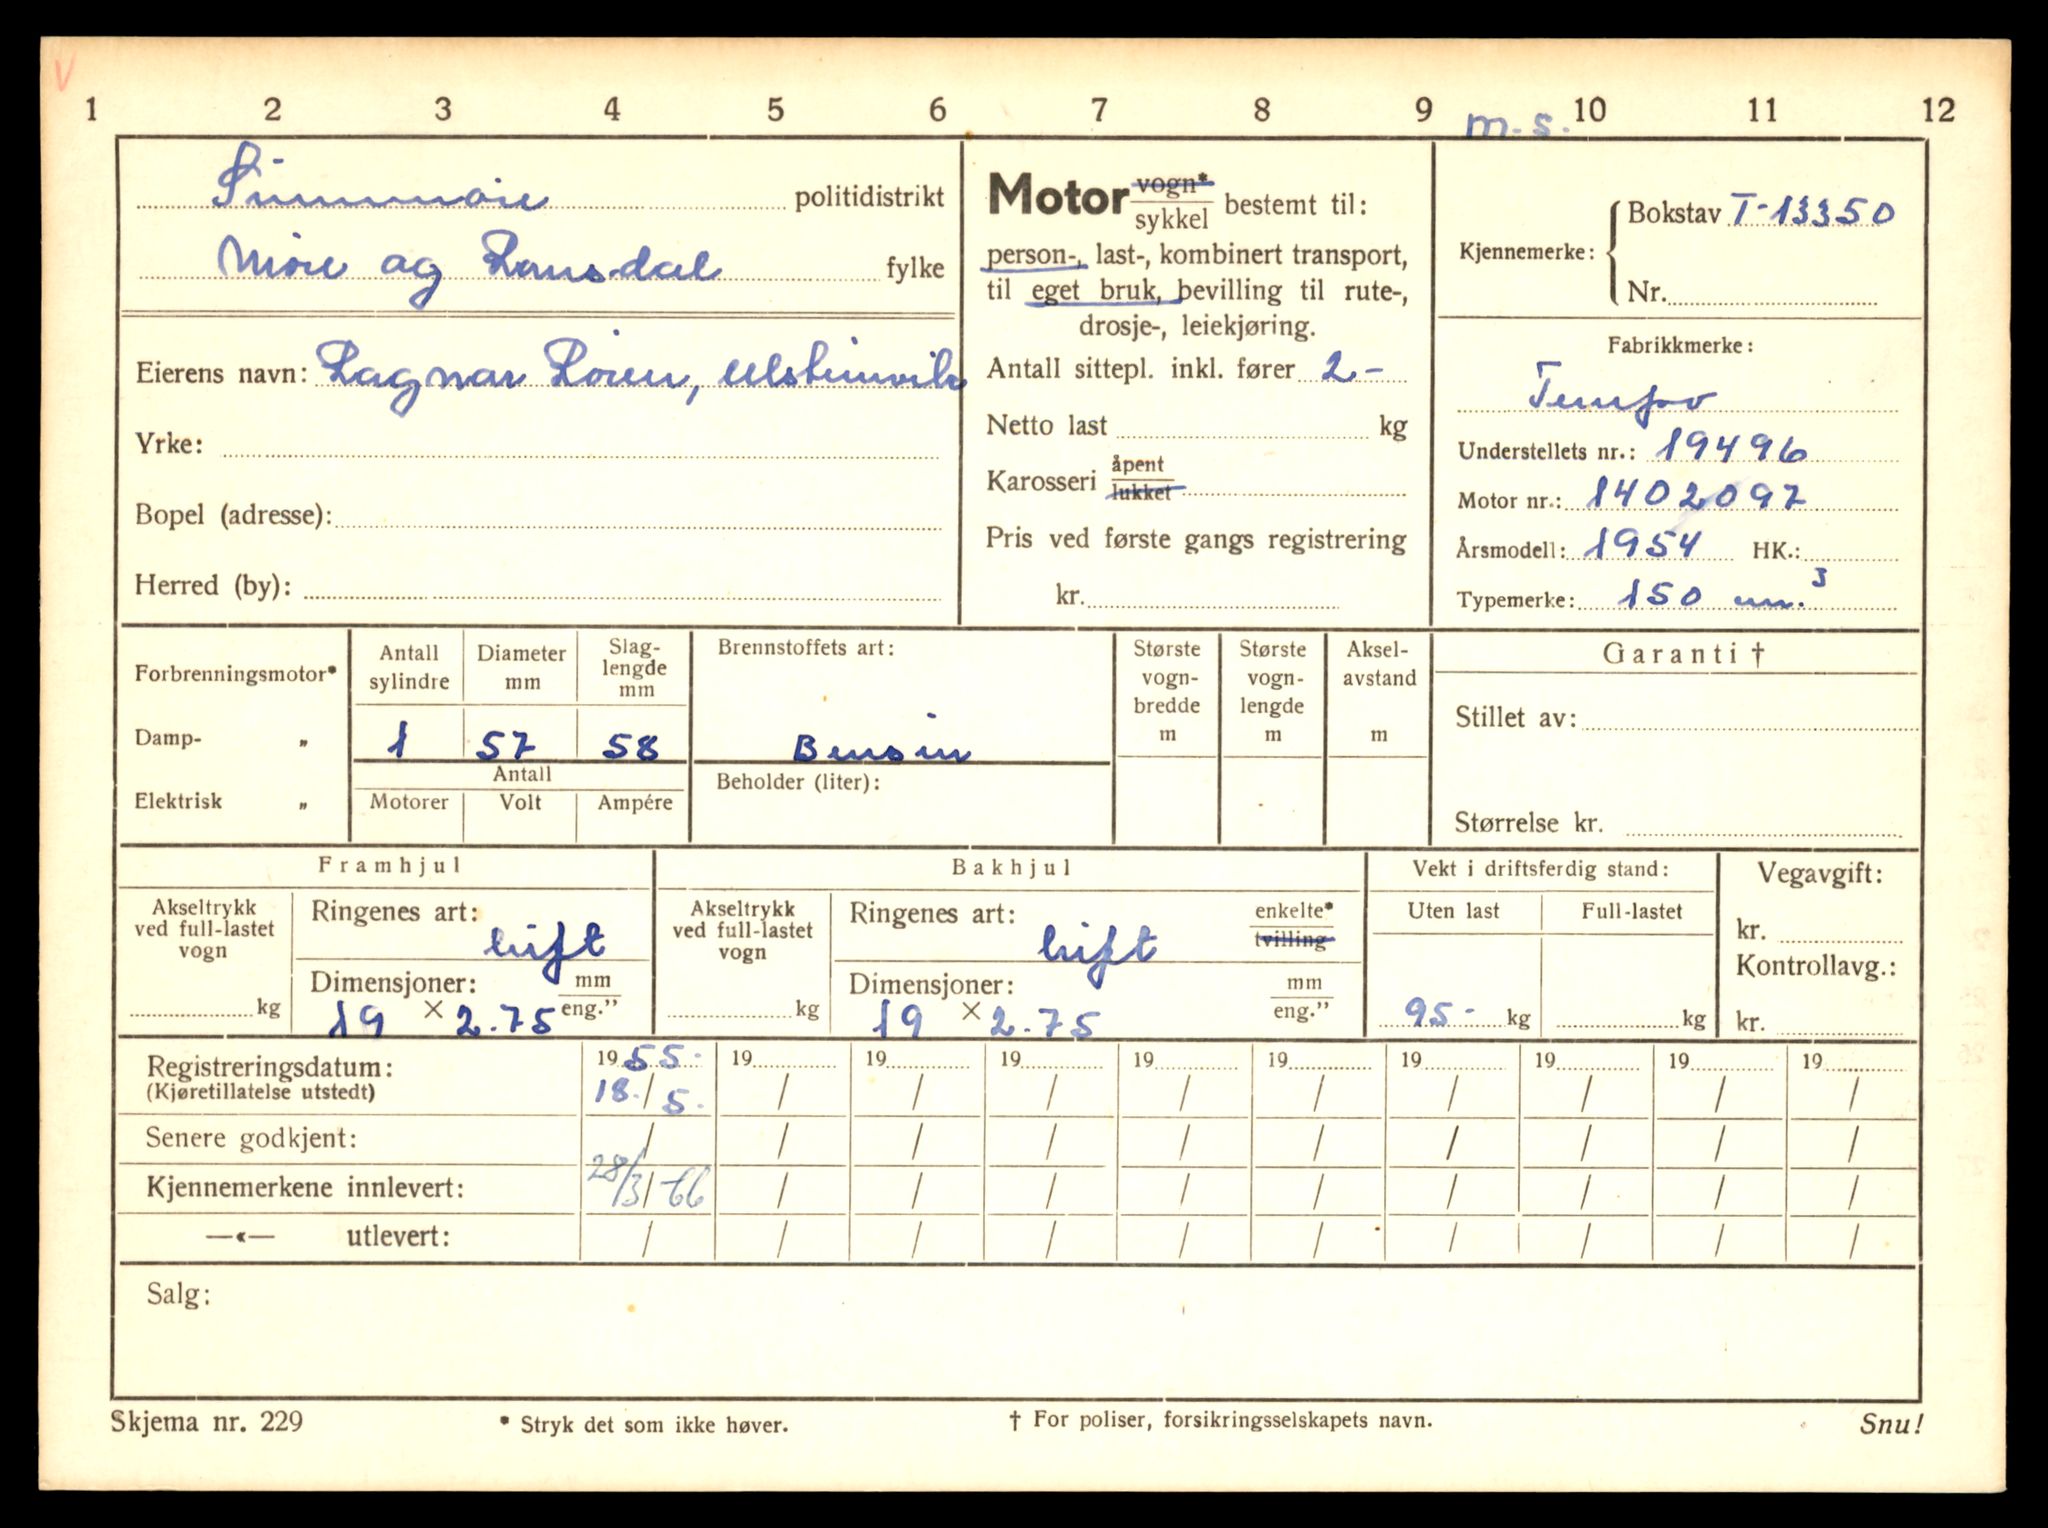 V
1 2 3 4 5 6 7 8 9 10 11 12
m.s.
Sunnmøre politidistrikt
Møre og Romsdal fylke
Eierens navn: Ragnar Róien, Ulsteinvik
Yrke:
Bopel (adresse):
Herred (by):
Motor vogn* / sykkel bestemt til:
person-, last-, kombinert transport,
til eget bruk, bevilling til rute-,
drosje-, leiekjøring.
Antall sittepl. inkl. fører 2-
Netto last kg
Karosseri åpent / lukket
Pris ved første gangs registrering
kr.
Kjennemerke: Bokstav T-13350
Nr.
Fabrikkmerke:
Tempo
Understellets nr.: 19496
Motor nr.: 1402097
Årsmodell: 1954 HK.:
Typemerke: 150 cm.³
Forbrenningsmotor*
Damp- „
Elektrisk „
Antall sylindre
Diameter mm
Slag-lengde mm
1 57 58
Antall
Motorer Volt Ampére
Brennstoffets art:
Bensin
Beholder (liter):
Største vogn-bredde m
Største vogn-lengde m
Aksel-avstand m
Garanti †
Stillet av:
Størrelse kr.
Framhjul
Akseltrykk ved full-lastet vogn
kg
Ringenes art:
luft
Dimensjoner: mm / eng.”
19 × 2.75
Bakhjul
Akseltrykk ved full-lastet vogn
kg
Ringenes art: enkelte* / tvilling
luft
Dimensjoner: mm / eng.”
19 × 2.75
Vekt i driftsferdig stand:
Uten last Full-lastet
95- kg kg
Vegavgift:
kr.
Kontrollavg.:
kr.
Registreringsdatum: 1955. 19 19 19 19 19 19 19 19 19
(Kjøretillatelse utstedt) 18./5. / / / / / / / / /
Senere godkjent: / / / / / / / / / /
Kjennemerkene innlevert: 28/3-66 / / / / / / / / /
—«— utlevert: / / / / / / / / / /
Salg:
Skjema nr. 229
* Stryk det som ikke høver.
† For poliser, forsikringsselskapets navn.
Snu!